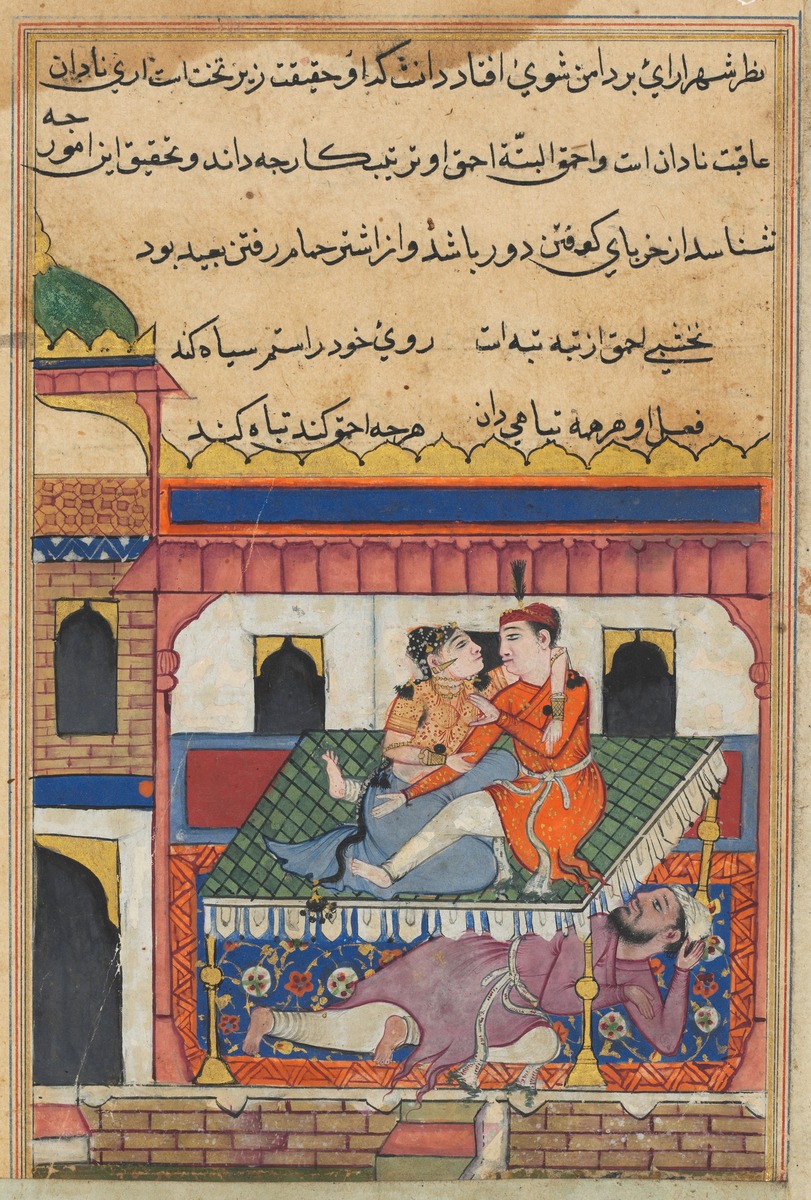 نظر شهرارای بر دامن شوی افتاد دانست که او حقیقت زیر تخت است اری نادان
عاقبت نادان است و احمق البتّة احمق او ترتیب کار جه داند و تحقیق این امور جه
شناسد از خر پای کوفتن دور باشد و از اشتر حمام رفتن بعید بود
نخشبی احمق از تبه تبه است روی خود را ستم سیاه کند
فعل او هر همه تباهی دان هر جه احمق کند تباه کند